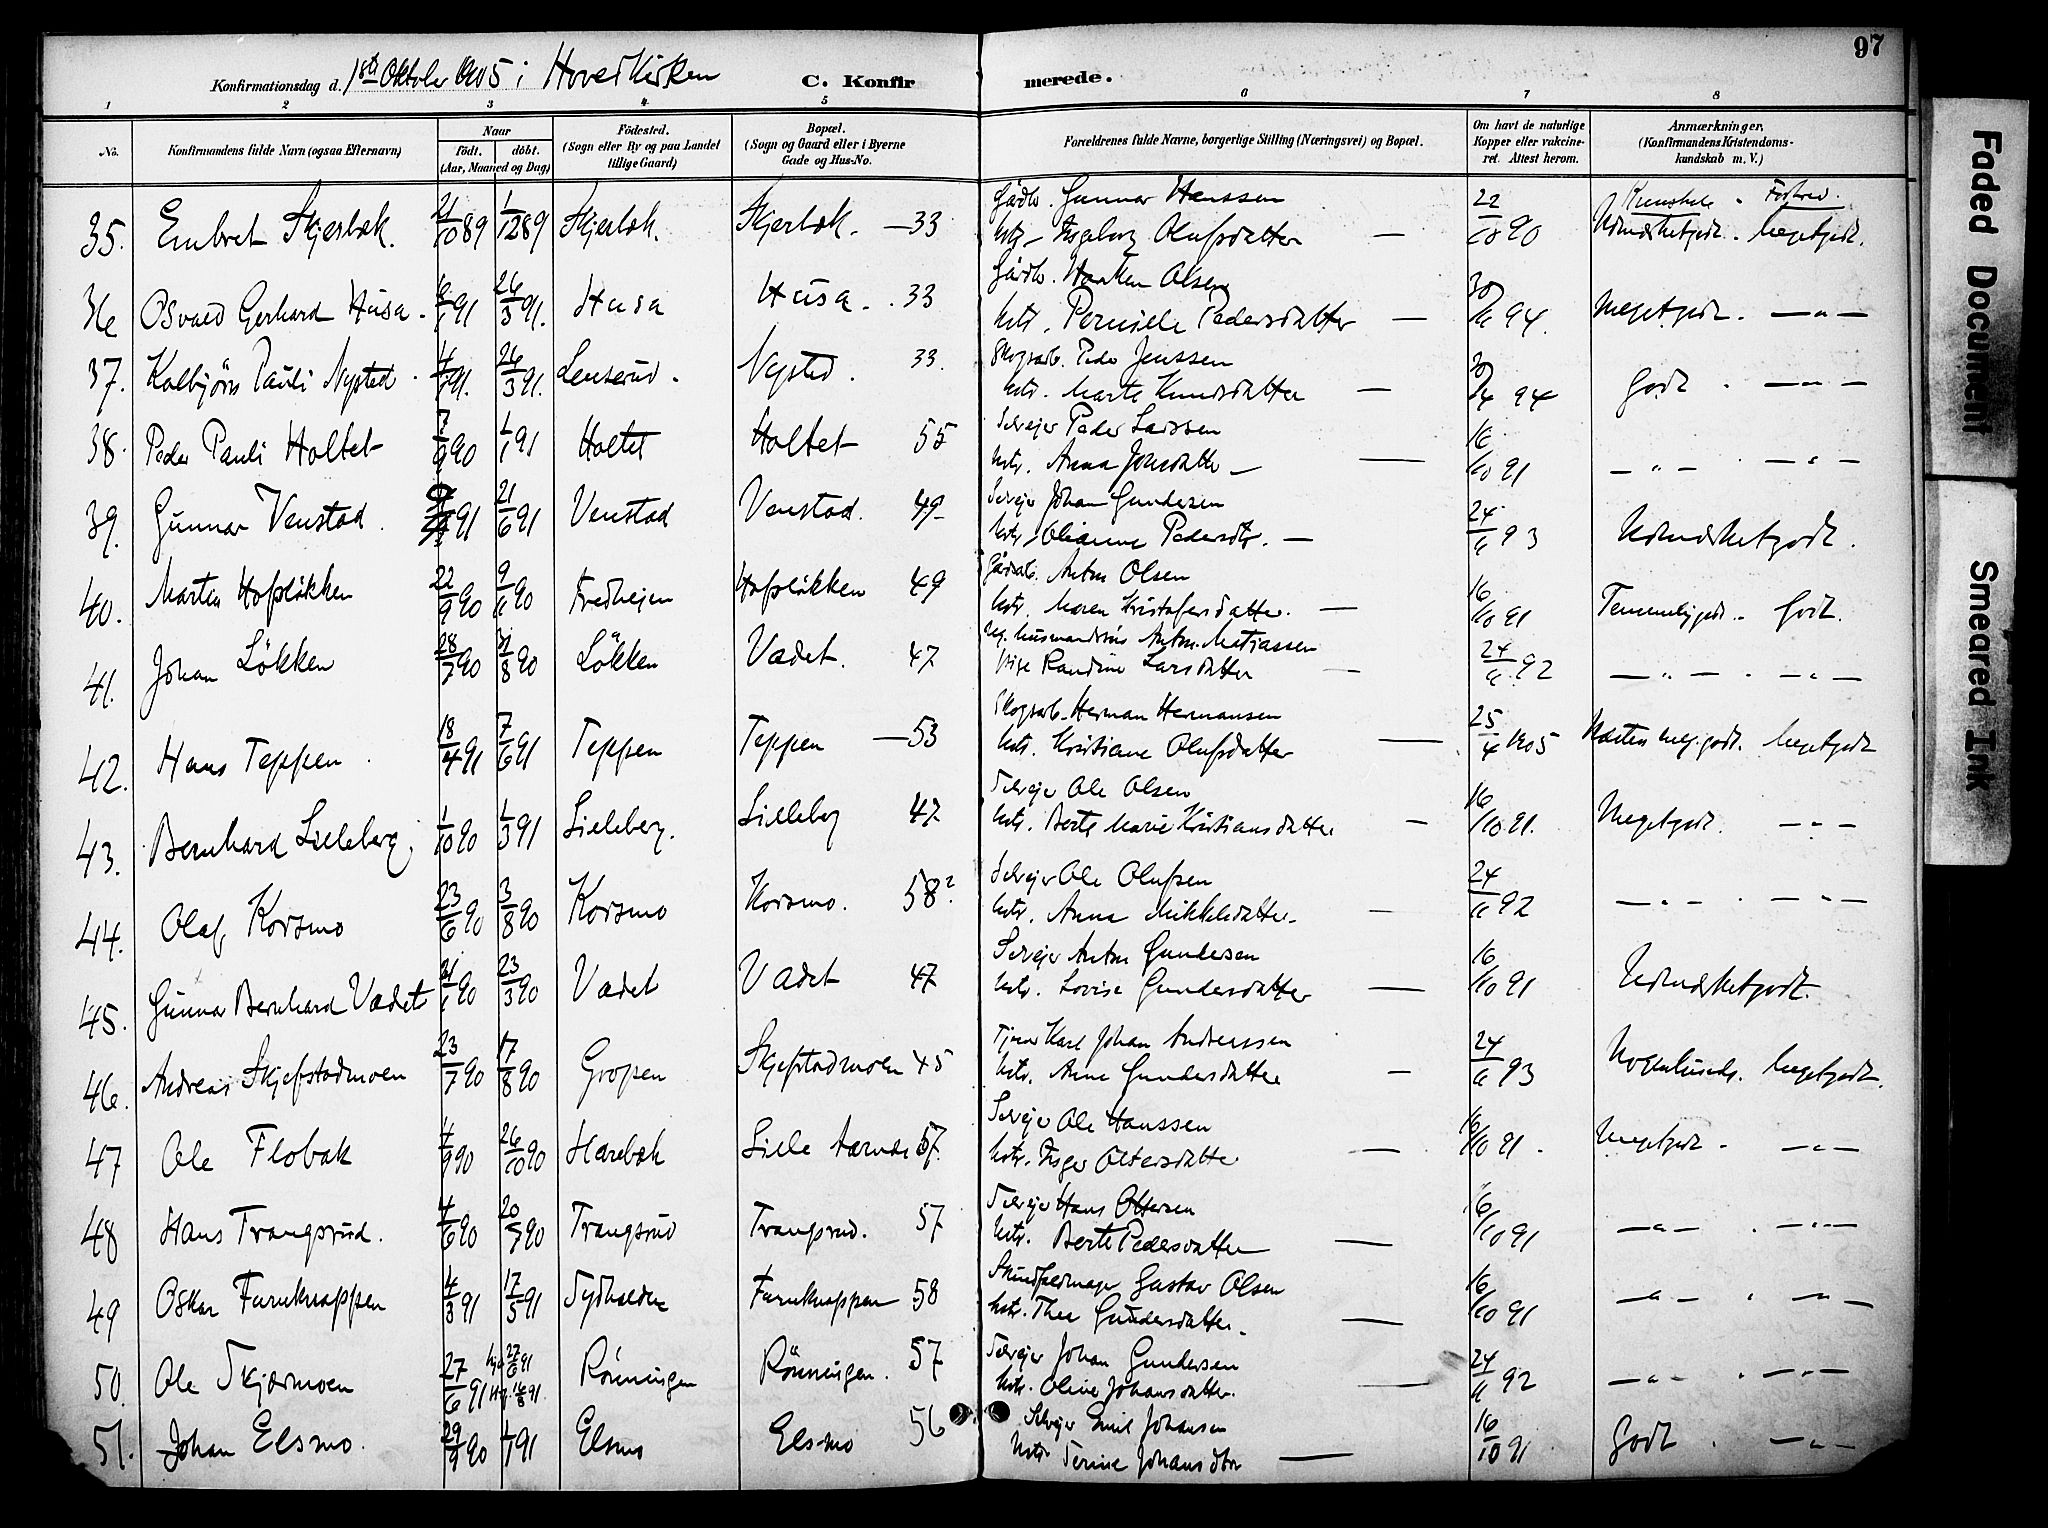 97
Konfirmationsdag d. 1ste Oktober 1905 i Hovedkirken C. Konfirmerede.
1 2 3 4 5 6 7 8
No. Konfirmandens fulde Navn (ogsaa Efternavn) Naar født. døbt. (Aar, Maaned og Dag) Fødested. (Sogn eller By og paa Landet tillige Gaard) Bopæl. (Sogn og Gaard eller i Byerne Gade og Hus-No. Forældrenes fulde Navne, borgerlige Stilling (Næringsvei) og Bopæl. Om havt de naturlige Kopper eller vaccineret. Attest herom. Anmærkninger. (Konfirmandens Kristendomskundskab m. V.)
35. Embret Skjerbæk. 21/10 89 1/12 89 Skjerbæk. Skjerbæk. — 33 Gårdb. Gunnar Hanssen Kundskab. Forhold.
Hstr. Ingeborg Olufsdatter — 22/10 90 Udmærketgodt. Megetgodt.
36 Osvald Gerhard Husa. 91 26/3 91. Husa Husa. 33 Gårdb. Haaken Olsen
Hstr. Pernille Pedersdatter — 94. Megetgodt. — " —
37. Kolbjørn Pauli Nysted. 91. 26/3 91. Lenserud. Nysted. 33. Skogsarb. Peder Jenssen
Hstr. Marte Knudsdatter — 94 Godt. — " —
38. Peder Pauli Holtet 90 1/1 91 Holtet Holtet 55 Selvejer Peder Larssen
Hstr. Anna Jonsdatter — 16/10 91 — " — . — " —
39. Gunnar Venstad. 91 21/6 91 Venstad Venstad. 49 Selvejer Johan Gundersen
Hstr. Olianne Pedersdtr. — 24/6 93 Udmærketgodt.
40. Martin Hofsløkken 22/9 90 9/11 90 Fredhejen Hofsløkken 49 Gårdarb. Anton Olsen
Hstr. Maren Kristofersdatter. — 16/10 91 Temmeliggodt. Godt.
41. Johan Løkken 28/7 90 31/8 90 Løkken Vædet. 47 Ug. husmandssøn Anton Matiassen
Pige Randine Larsdatter — 24/6 92 — " — . — " —
42. Hans Teppen. 18/4 91 7/6 91 Teppen Teppen — 53 Skogsarb. Herman Hermansen
Hstr. Kristiane Olufsdatter — 25/4 1905 Næsten meg. godt. Megetgodt
43. Bernhard Lilleberg. 1/10 90 1/3 91 Lilleberg. Lilleberg 47 Selvejer Ole Olsen
Hstr. Berte Marie Kristiansdatter — 16/10 91. Megetgodt. — " —
44. Olaf Korsmo 23/6 90 3/8 90 Korsmo Korsmo. 58? Selvejer Ole Olufsen
Hstr. Anna Mikkelsdatter. — 24/6 92 — " — . — " —
45. Gunnar Bernhard Vædet 21/1 90 23/3 90 Vædet Vædet 47 Selvejer Anton Gundersen
Hstr. Lovise Gundersdatter — 16/10 91 Udmærketgodt.
46. Andreas Skjefstadmoen 23/7 90 17/8 90 Gropen Skjefstadmoen 45 Tjener Karl Johan Anderssen
Hstr. Anne Gundersdatter — 24/6 93 Nogenlunde. Megetgodt.
47 Ole Flobak 4/9 90 26/10 90 Harebæk Lille 57. Selvejer Ole Hanssen
Hstr. Inger Ottersdatter — 16/10 91. Megetgodt. — " —
48 Hans Trangsrud. 4/6 90 20/7 90 Trangsrud Trangsrud. 57 Selvejer Hans Ottersen
Hstr. Berte Pedersdatter — 16/10 91 — " — — " —
49 Oskar Furuknappen 4/3 91 17/5 91 Sydhalden Furuknappen 58 Skindfeldmager Gustav Olsen
Hstr. Thea Gundersdatter. — 16/10 91 — " — . — " —
50. Ole Skjærmoen 27/6 91 Hj. 27/6 91 Rønningen Rønningen. 57 Selvejer Johan Gundersen
16/8 91. Hstr. Oline Johansdatter. — 24/6 92 — " — . — " —
51. Johan Elsmo. 29/9 90 1/1 91 Elsmo Elsmo 56 Selvejer Emil Johansen
Hstr. Terine Johansdtr — 16/10 91 Godt. — " —
Faded Document
Smeared Ink